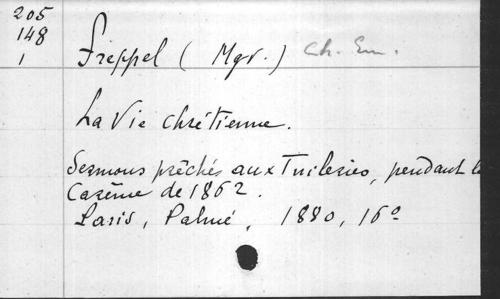 205
148
1
Freppel (Mgr.) Ch. Em.
La Vie chrétienne.
Sermons prêchés aux Tuileries, pendant le
Carême de 1862.
Paris, Palmé, 1880, 16º